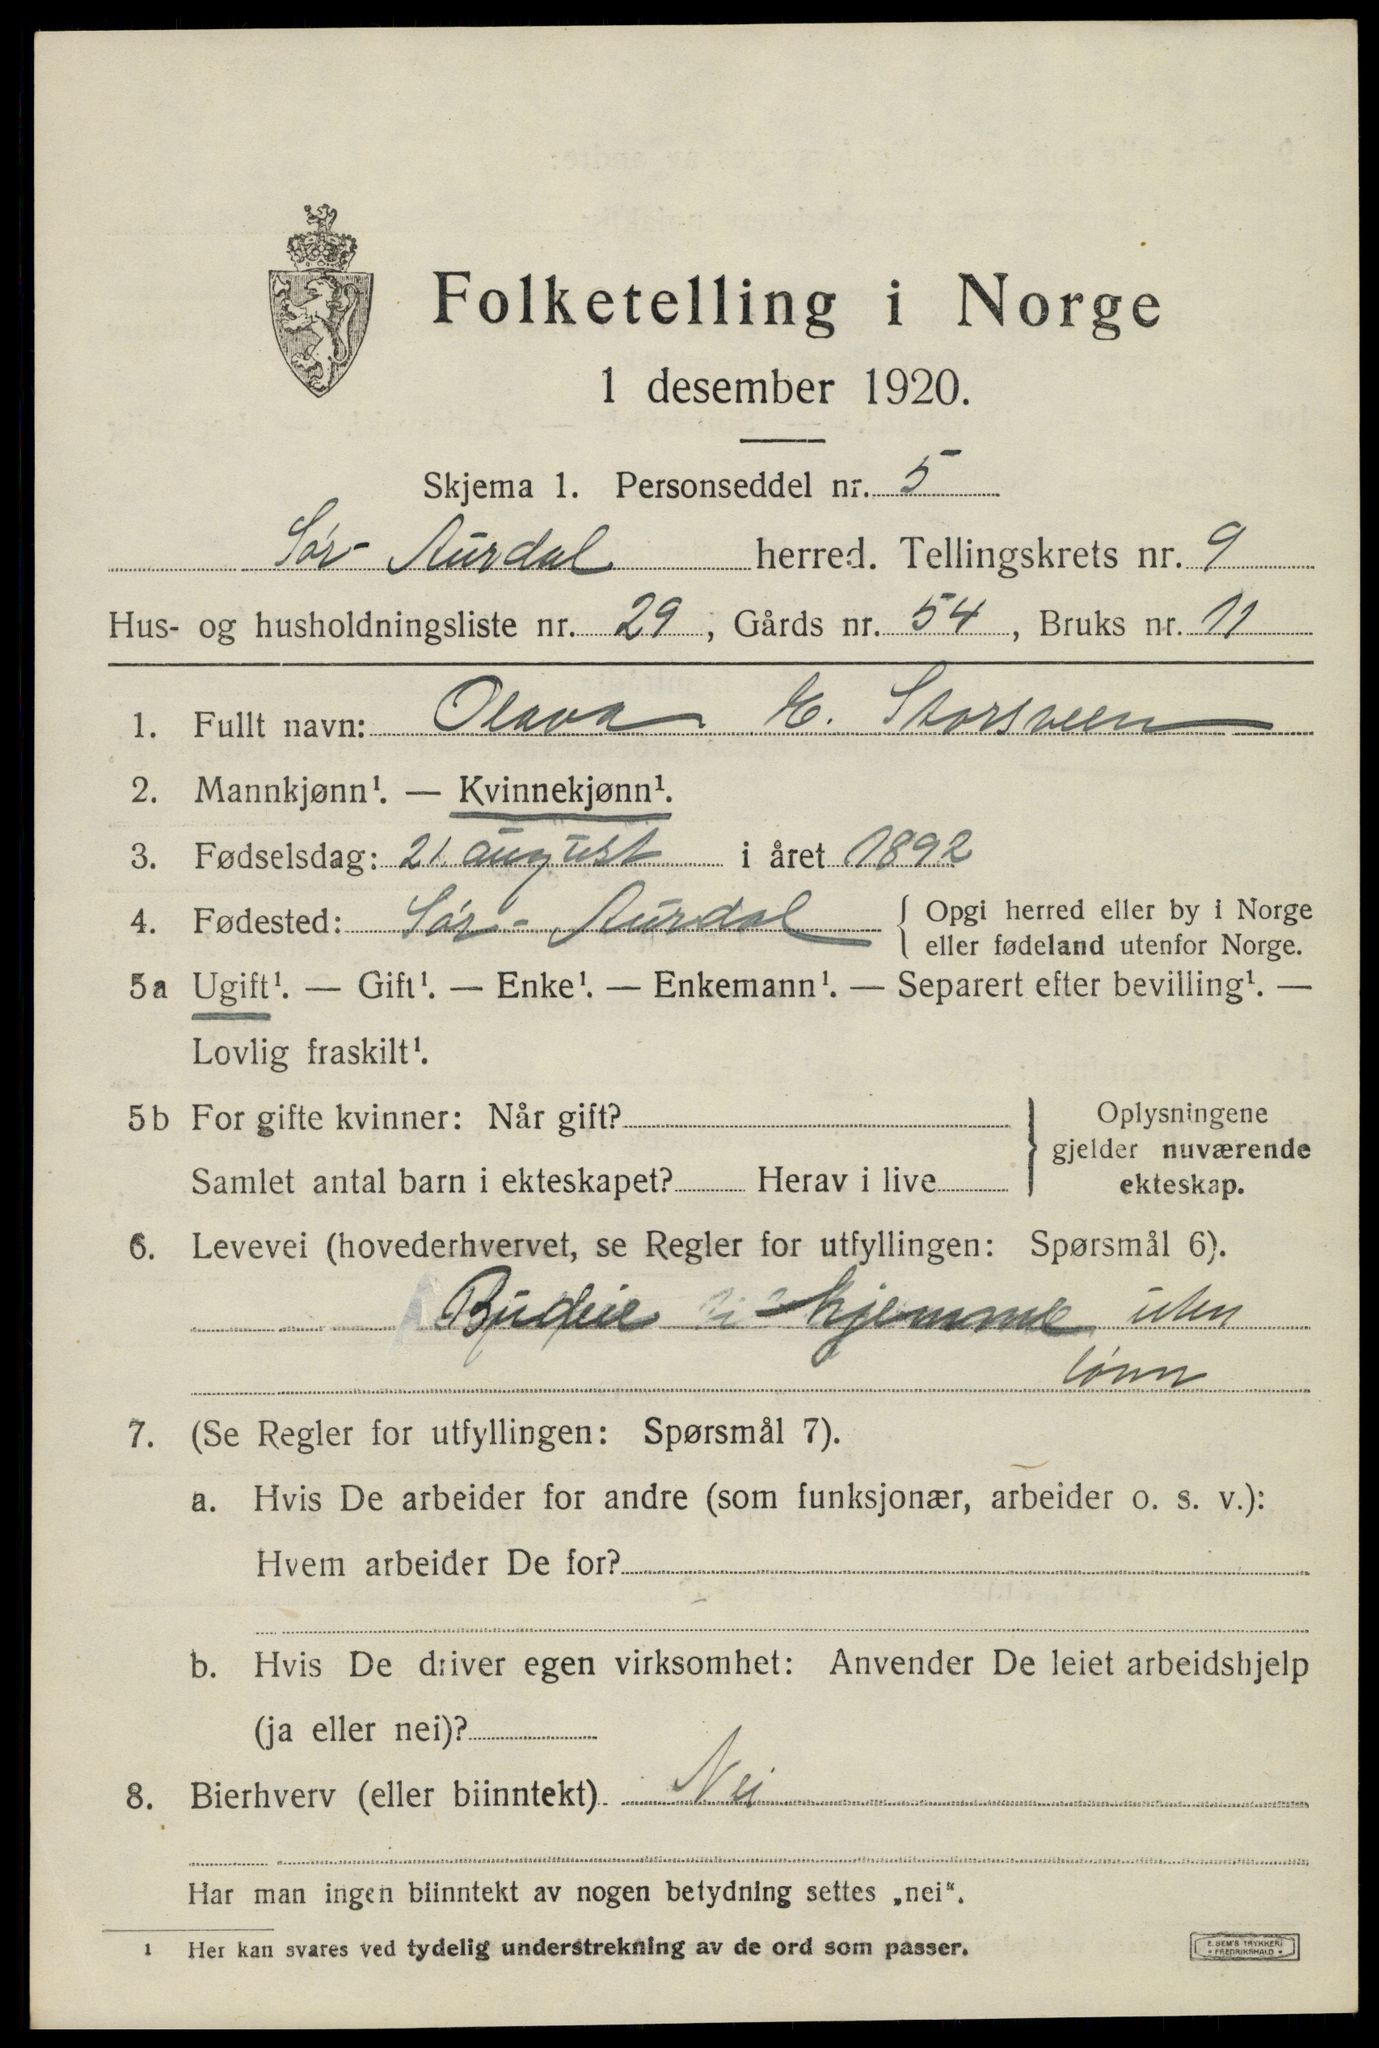 Folketelling i Norge
1 desember 1920.
Skjema 1. Personseddel nr. 5
Sør-Aurdal herred. Tellingskrets nr. 9
Hus- og husholdningsliste nr. 29, Gårds nr. 54, Bruks nr. 11
1. Fullt navn: Olava E. Storsveen
2. Mannkjønn¹. — Kvinnekjønn¹.
3. Fødselsdag: 21 august i året 1892
4. Fødested: Sør-Aurdal { Opgi herred eller by i Norge
eller fødeland utenfor Norge.
5a Ugift¹. — Gift¹. — Enke¹. — Enkemann¹. — Separert efter bevilling¹. —
Lovlig fraskilt¹.
5b For gifte kvinner: Når gift?
Samlet antal barn i ekteskapet? Herav i live
} Oplysningene
gjelder nuværende
ekteskap.
6. Levevei (hovederhvervet, se Regler for utfyllingen: Spørsmål 6).
Budeie hjemme uten
lønn
7. (Se Regler for utfyllingen: Spørsmål 7).
a. Hvis De arbeider for andre (som funksjonær, arbeider o. s. v.):
Hvem arbeider De for?
b. Hvis De driver egen virksomhet: Anvender De leiet arbeidshjelp
(ja eller nei)?
8. Bierhverv (eller biinntekt) Nei
Har man ingen biinntekt av nogen betydning settes „nei“.
1 Her kan svares ved tydelig understrekning av de ord som passer.
E. SEM'S TRYKKERI
FREDRIKSHALD